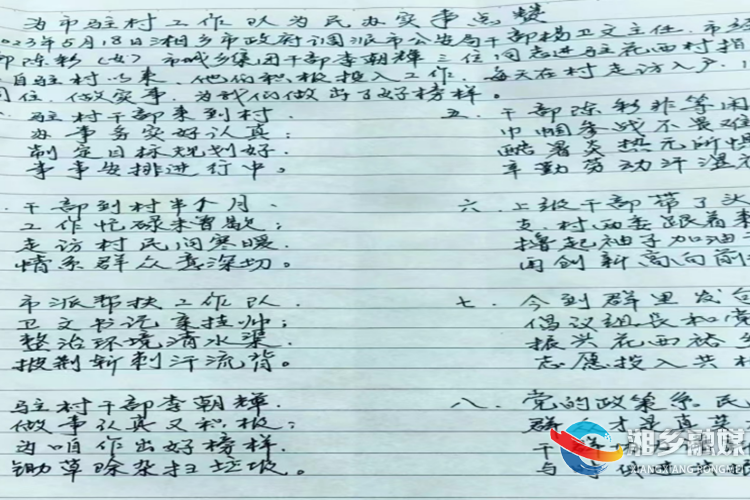 为市驻村工作队为民办实事点赞
2023年5月18日湘乡市政府调派市公安局干部杨卫文主任.市
部陈彩(女)市城乡集团干部李朝辉三位同志进驻花西村指
自驻村以来.他们积极投入工作.每天在村走访入户.
同住.做实事.为我们做出了好榜样。
驻村干部来到村.
办事务实好认真;
制定目标规划好.
事事安排进行中。
干部到村半个月.
工作忙碌未曾歇;
走访村民问寒暖.
情系群众意深切。
市派帮扶工作队.
卫文书记亲挂帅;
整治环境清水渠.
披荆斩刺汗流背。
驻村干部李朝辉.
做事认真又积极;
为咱作出好榜样.
锄草除杂扫垃圾。
五.干部陈彩非等闲
巾帼参战不畏难
酷暑炎热无所惧
辛勤劳动汗湿
六.上级干部带了头
支.村两委跟着来
撸起袖子加油干
再创新高向前
七.今到群里发
倡议组长和党
振兴花西裕
志愿投入共
八.党的政策系民
群 才是真英
干群
与
湘乡融媒
XIANGXIANG RONGMEI